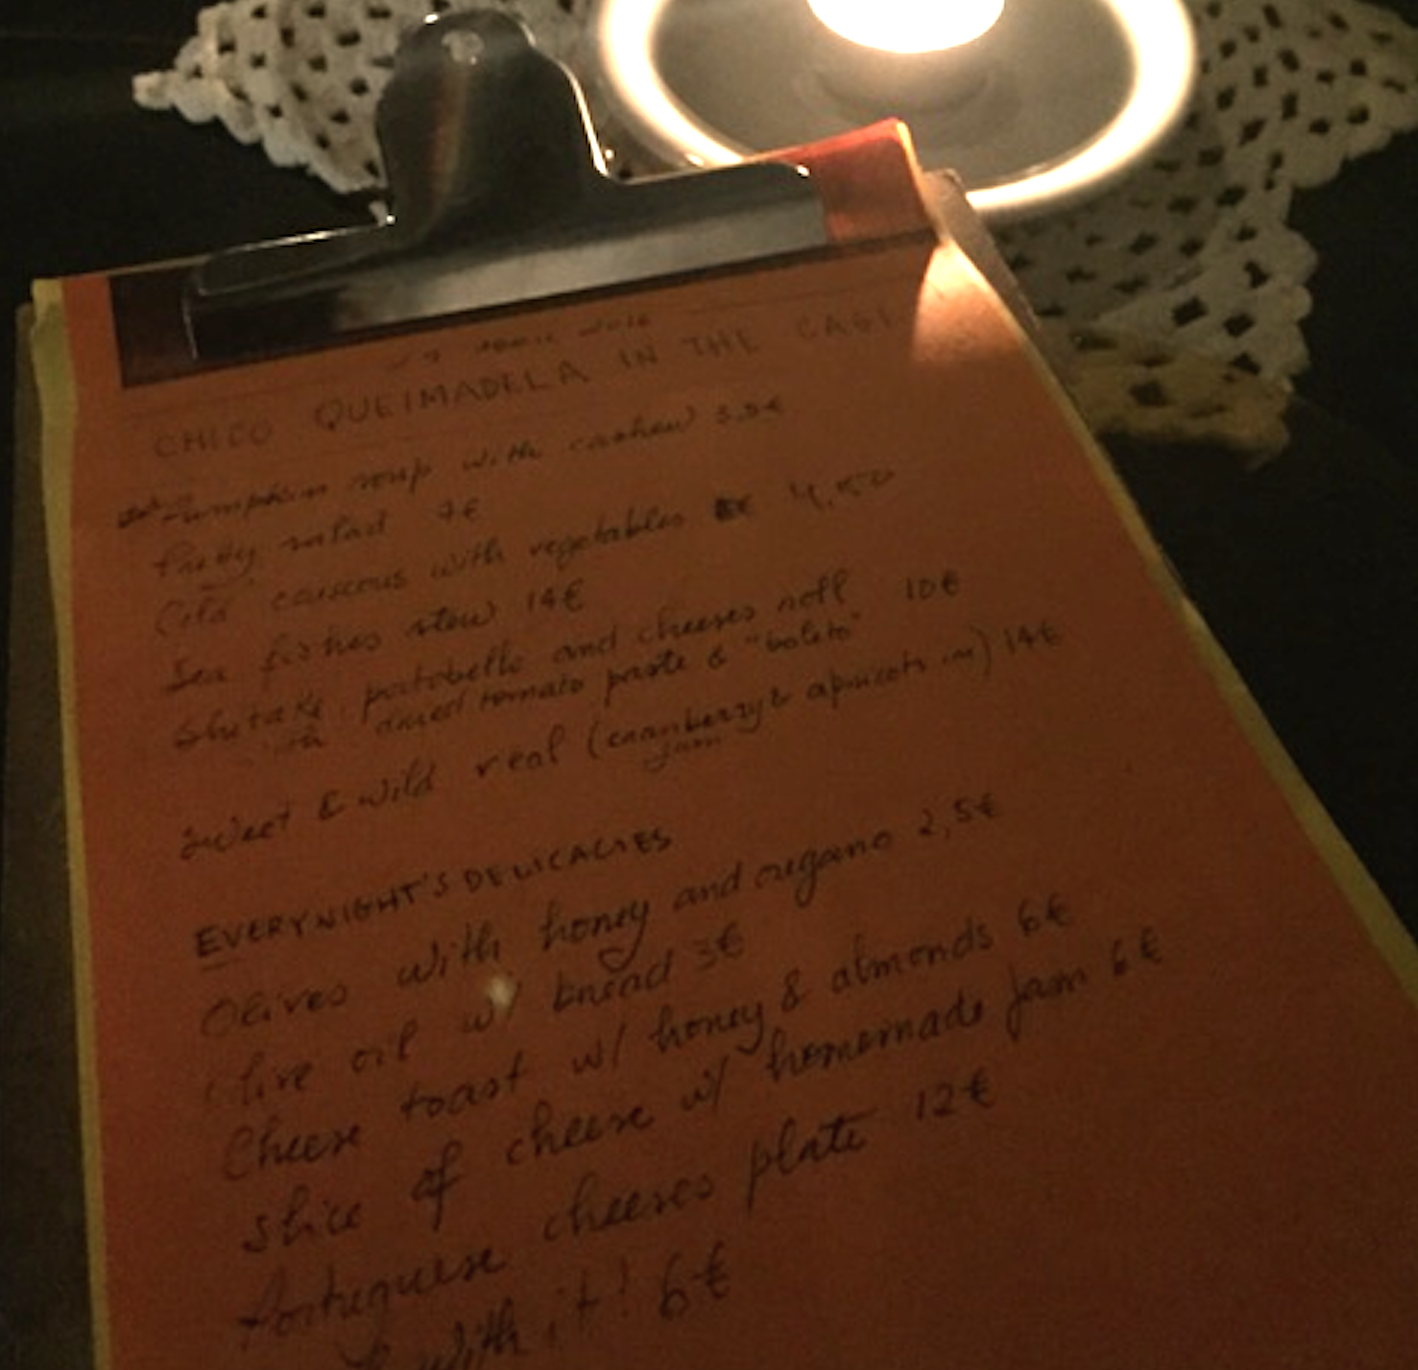 2016
CHICO QUEIMADELA IN THE
Pumpkin soup with cashew 3.5€
Pretty salad
couscous with vegetables 4,50
Sea fishes stew 14€
Shitake, portobello and cheeses roll 10€
dried tomato paste & "boleto"
Sweet & wild (cranberry & apricots in) 14€
jam
EVERYNIGHT'S DELICACIES
Olives with honey and oregano 2,5€
olive oil w/ bread 3€
Cheese toast w/ honey & almonds 6€
Slice of cheese w/ homemade jam 6€
Portuguese cheeses plate 12€
with it! 6€